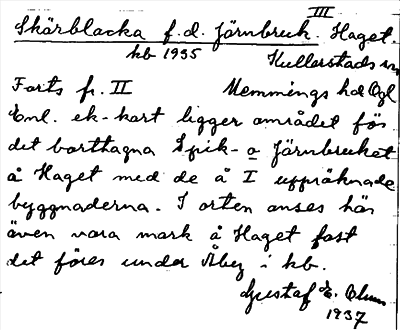 III
Skärblacka f.d. Järnbruk. Haget.
kb 1935 Kullerstads sn
Forts fr. II Memmings hd Ögl
Enl. ek-kart ligger området för
det borttagna Spik- o Järnbruket
å Haget med de å I uppräknade
byggnaderna. I orten anses här
även vara mark å Haget fast
det föres under Åby i kb.
Gustaf E. Ohm
1937